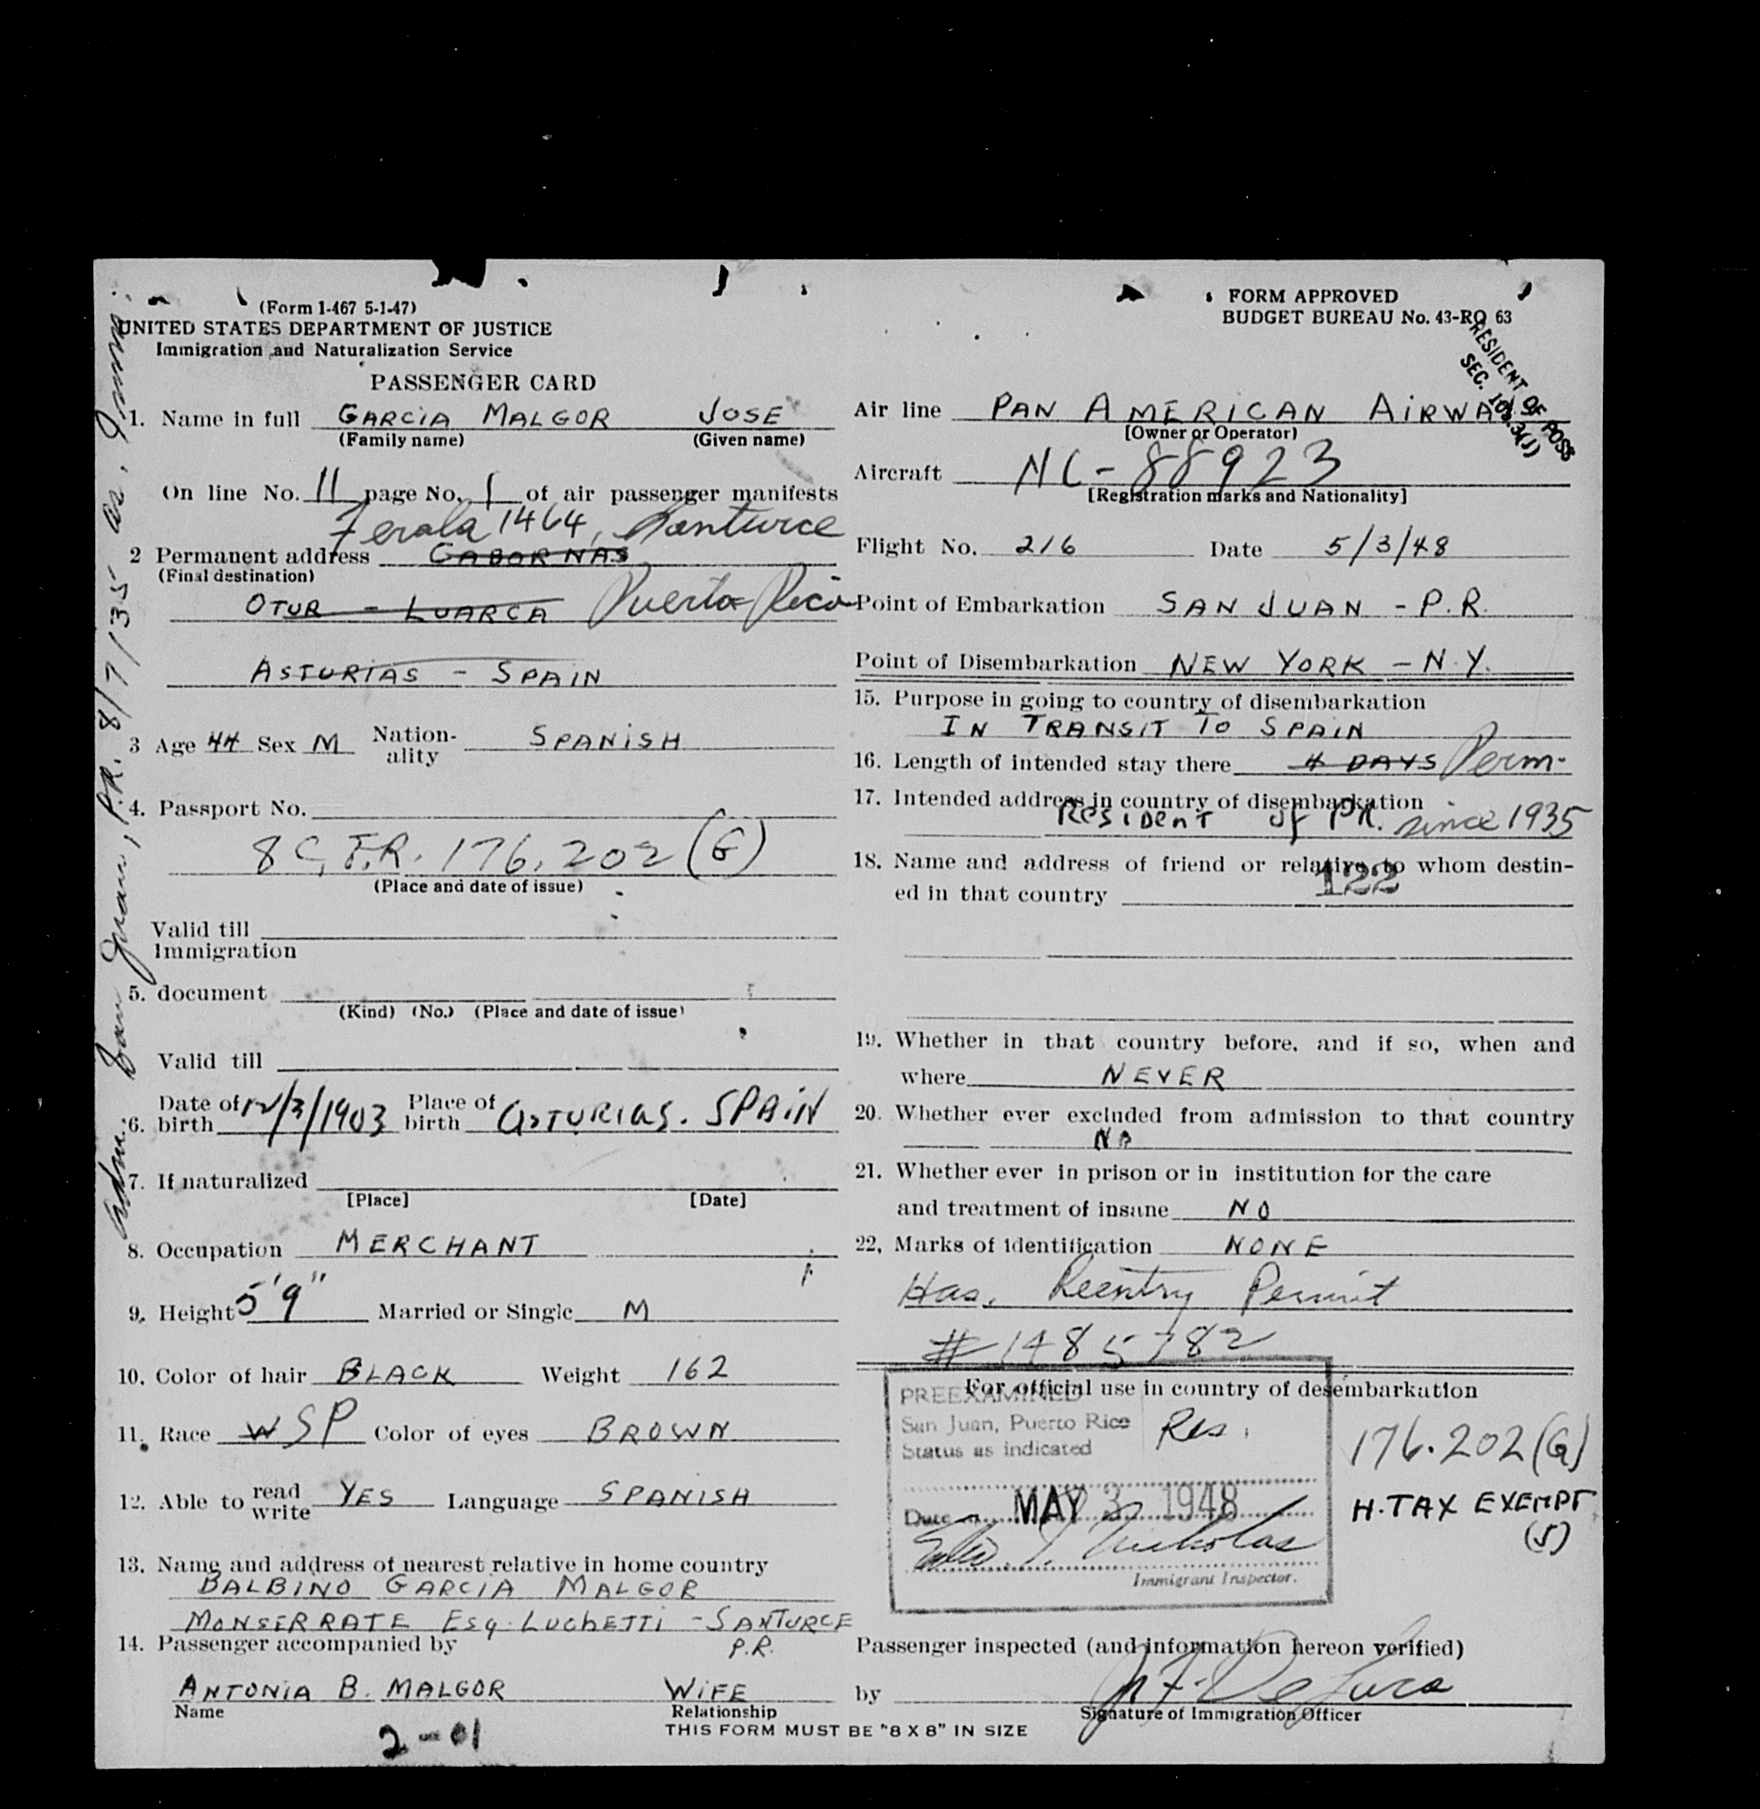 (Form I-467 5-1-47)
UNITED STATES DEPARTMENT OF JUSTICE
Immigration and Naturalization Service
PASSENGER CARD
1. Name in full GARCIA MALGOR JOSE
(Family name) (Given name)
On line No. 11 page No. 1 of air passenger manifests
Ferola 1464, Santurce
2 Permanent address GABORNAS
(Final destination)
OTUR - LUARCA Puerto Rico
ASTURIAS - SPAIN
3 Age 44 Sex M Nation-ality SPANISH
4. Passport No.
8 C, F.R. 176.202 (G)
(Place and date of issue)
Valid till
Immigration
5. document
(Kind) (No.) (Place and date of issue)
Valid till
6. Date of birth 12/3/1903 Place of birth ASTURIAS. SPAIN
7. If naturalized
[Place] [Date]
8. Occupation MERCHANT
9. Height 5'9" Married or Single M
10. Color of hair BLACK Weight 162
11. Race W SP Color of eyes BROWN
12. Able to read write YES Language SPANISH
13. Name and address of nearest relative in home country
BALBINO GARCIA MALGOR
MONSERRATE ESQ. LUCHETTI - SANTURCE
P.R.
14. Passenger accompanied by
ANTONIA B. MALGOR WIFE
Name Relationship
2-01
THIS FORM MUST BE "8 X 8" IN SIZE
Adm. San Juan, P.R. 8/7/35 as. Imm.
FORM APPROVED
BUDGET BUREAU No. 43-RO 63
RESIDENT OF POSS
SEC. 108.3(J)
Air line PAN AMERICAN AIRWAYS
[Owner or Operator]
Aircraft NC-88923
[Registration marks and Nationality]
Flight No. 216 Date 5/3/48
Point of Embarkation SAN JUAN - P.R.
Point of Disembarkation NEW YORK - N.Y.
15. Purpose in going to country of disembarkation
IN TRANSIT TO SPAIN
16. Length of intended stay there 4 DAYS Perm.
17. Intended address in country of disembarkation
Resident of P.R. since 1935
18. Name and address of friend or relative to whom destin-
ed in that country
122
19. Whether in that country before, and if so, when and
where NEVER
20. Whether ever excluded from admission to that country
NO
21. Whether ever in prison or in institution for the care
and treatment of insane NO
22. Marks of identification NONE
Has. Reentry Permit
# 1485782
For official use in country of desembarkation
PREEXAMINED
San Juan, Puerto Rico
Status as indicated Res.
Date MAY 3 1948
Nicholas
Immigrant Inspector.
176.202 (G)
H. TAX EXEMPT
(5)
Passenger inspected (and information hereon verified)
by
Signature of Immigration Officer